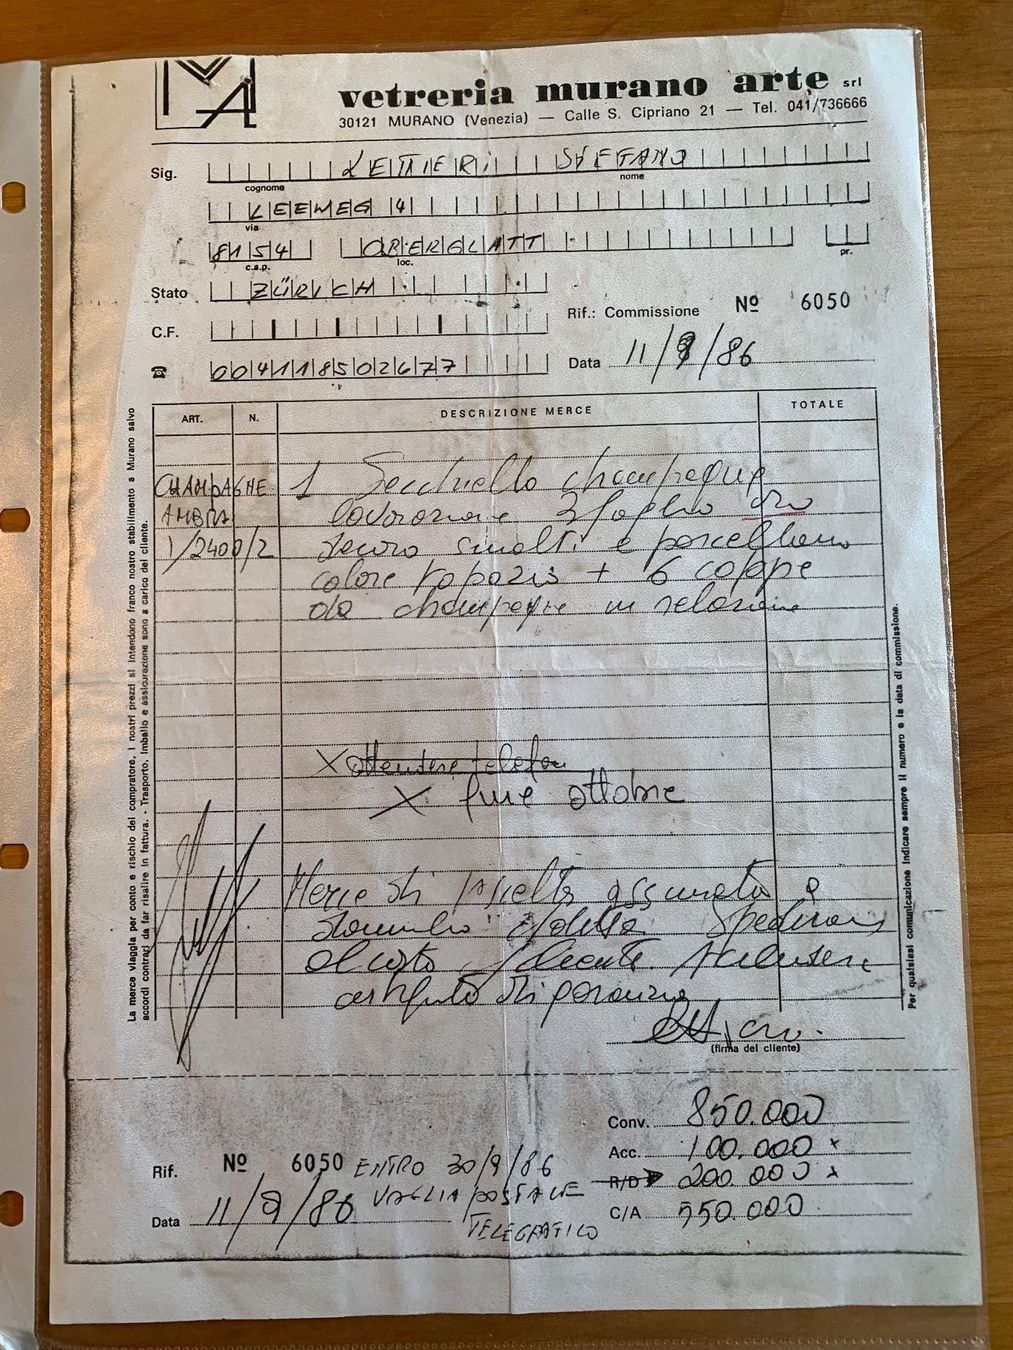 MA
vetreria murano arte srl
30121 MURANO (Venezia) — Calle S. Cipriano 21 — Tel. 041/736666
Sig. STEFANO
cognome nome
LEEWEG 4
via
8154 OBERGLATT
c.a.p. loc. pr.
Stato ZÜRICH
Rif.: Commissione Nº 6050
C.F.
Data 11/9/86
☎ 004118502677
ART. N. DESCRIZIONE MERCE TOTALE
CHAMPAGNE 1 Secchiello champagne
AMBRA lavorazione 3 foglio oro
1/2400/2 decoro smalti e porcellana
colore topazio + 6 coppe
da champagne in relazione
X attendere telefon
X fine ottobre
Merce di scelta assicurata a
domicilio
al costo cliente.
certificato di garanzia
(firma del cliente)
La merce viaggia per conto e rischio del compratore. I nostri prezzi si intendono franco nostro stabilimento a Murano salvo
accordi contrari da far risalire in fattura. - Trasporto, imballo e assicurazione sono a carico del cliente.
Per qualsiasi comunicazione indicare sempre il numero e la data di commissione.
Conv. 850.000
Acc. 100.000 x
R/D 200.000 x
C/A 550.000
Rif. Nº 6050 ENTRO 30/9/86
VAGLIA POSTALE
Data 11/9/86 TELEGRAFICO